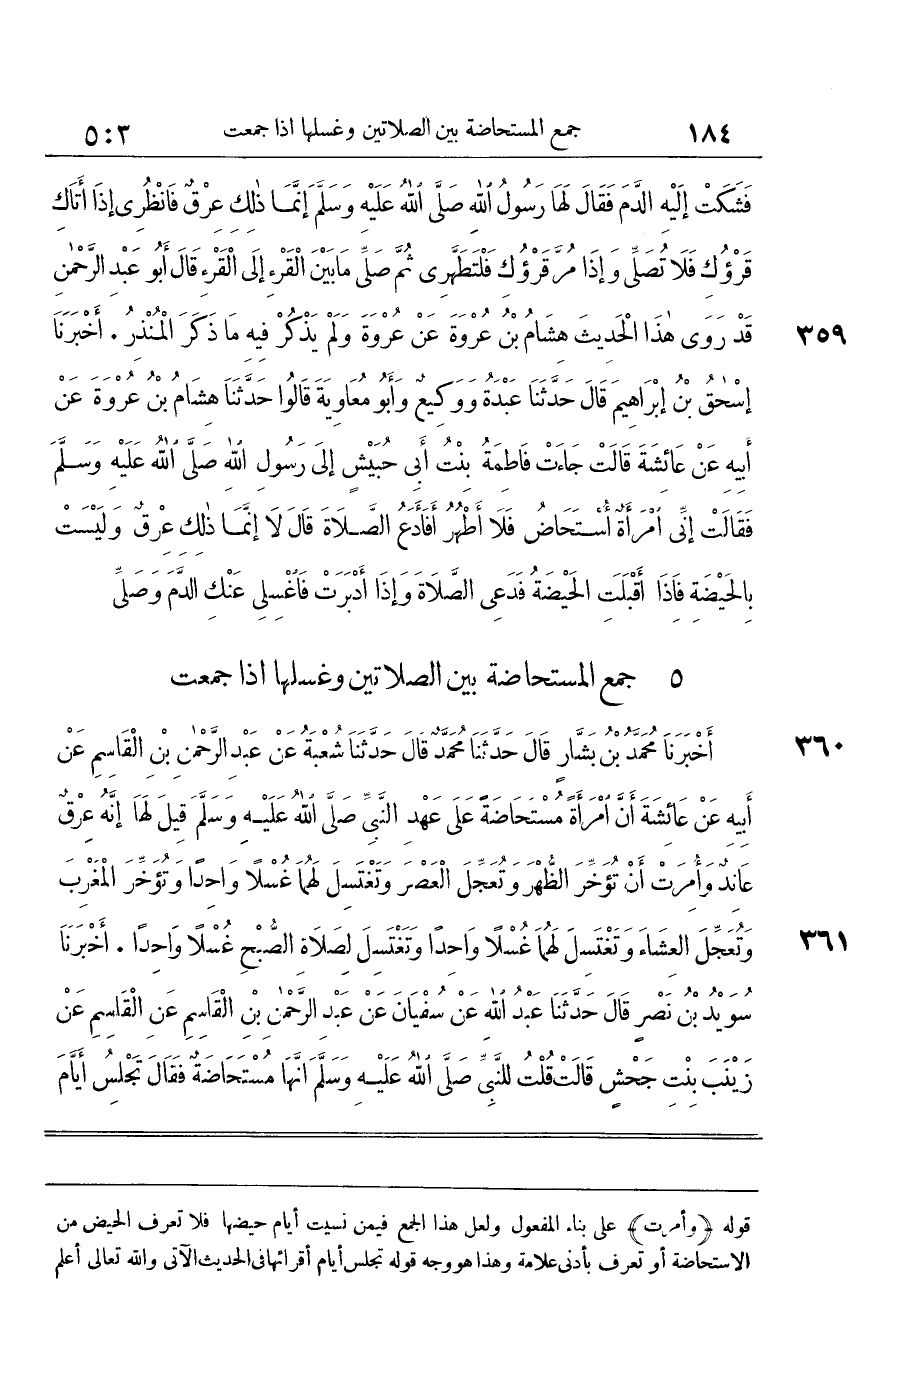 ١٨٤ جمع المستحاضة بين الصلاتين وغسلها اذا جمعت ٥:٣
فَشَكَتْ إِلَيْهِ الدَّمَ فَقَالَ لَهَا رَسُولُ اللهِ صَلَّى اللهُ عَلَيْهِ وَسَلَّمَ إِنَّمَا ذٰلِكِ عِرْقٌ فَانْظُرِى إِذَا أَتَاكِ
قَرْؤُكِ فَلَا تُصَلِّى وَإِذَا مَرَّ قَرْؤُكِ فَلْتَطَهَّرِى ثُمَّ صَلِّى مَابَيْنَ الْقَرْءِ إِلَى الْقَرْءِ قَالَ أَبُو عَبْدِ الرَّحْمٰنِ
٣٥٩ قَدْ رَوَى هٰذَا الْحَدِيثَ هِشَامُ بْنُ عُرْوَةَ عَنْ عُرْوَةَ وَلَمْ يَذْكُرْ فِيهِ مَا ذَكَرَ الْمُنْذِرُ . أَخْبَرَنَا
إِسْحٰقُ بْنُ إِبْرَاهِيمَ قَالَ حَدَّثَنَا عَبْدَةُ وَوَكِيعٌ وَأَبُو مُعَاوِيَةَ قَالُوا حَدَّثَنَا هِشَامُ بْنُ عُرْوَةَ عَنْ
أَبِيهِ عَنْ عَائِشَةَ قَالَتْ جَاءَتْ فَاطِمَةُ بِنْتُ أَبِى حُبَيْشٍ إِلَى رَسُولِ اللهِ صَلَّى اللهُ عَلَيْهِ وَسَلَّمَ
فَقَالَتْ إِنِّى امْرَأَةٌ أُسْتَحَاضُ فَلَا أَطْهُرُ أَفَأَدَعُ الصَّلَاةَ قَالَ لَا إِنَّمَا ذٰلِكِ عِرْقٌ وَلَيْسَتْ
بِالْحَيْضَةِ فَإِذَا أَقْبَلَتِ الْحَيْضَةُ فَدَعِى الصَّلَاةَ وَإِذَا أَدْبَرَتْ فَاغْسِلِى عَنْكِ الدَّمَ وَصَلِّى
٥ جمع المستحاضة بين الصلاتين وغسلها اذا جمعت
٣٦٠ أَخْبَرَنَا مُحَمَّدُ بْنُ بَشَّارٍ قَالَ حَدَّثَنَا مُحَمَّدٌ قَالَ حَدَّثَنَا شُعْبَةُ عَنْ عَبْدِ الرَّحْمٰنِ بْنِ الْقَاسِمِ عَنْ
أَبِيهِ عَنْ عَائِشَةَ أَنَّ امْرَأَةً مُسْتَحَاضَةً عَلَى عَهْدِ النَّبِىِّ صَلَّى اللهُ عَلَيْهِ وَسَلَّمَ قِيلَ لَهَا إِنَّهُ عِرْقٌ
عَانِدٌ وَأُمِرَتْ أَنْ تُؤَخِّرَ الظُّهْرَ وَتُعَجِّلَ الْعَصْرَ وَتَغْتَسِلَ لَهُمَا غُسْلًا وَاحِدًا وَتُؤَخِّرَ الْمَغْرِبَ
٣٦١ وَتُعَجِّلَ الْعِشَاءَ وَتَغْتَسِلَ لَهُمَا غُسْلًا وَاحِدًا وَتَغْتَسِلَ لِصَلَاةِ الصُّبْحِ غُسْلًا وَاحِدًا . أَخْبَرَنَا
سُوَيْدُ بْنُ نَصْرٍ قَالَ حَدَّثَنَا عَبْدُ اللهِ عَنْ سُفْيَانَ عَنْ عَبْدِ الرَّحْمٰنِ بْنِ الْقَاسِمِ عَنِ الْقَاسِمِ عَنْ
زَيْنَبَ بِنْتِ جَحْشٍ قَالَتْ قُلْتُ لِلنَّبِىِّ صَلَّى اللهُ عَلَيْهِ وَسَلَّمَ انَّهَا مُسْتَحَاضَةٌ فَقَالَ تَجْلِسُ أَيَّامَ
قوله ﴿وأمرت﴾ على بناء المفعول ولعل هذا الجمع فيمن نسيت أيام حيضها فلا تعرف الحيض من
الاستحاضة أو تعرف بأدنى علامة وهذا هو وجه قوله تجلس أيام أقرائها فى الحديث الآتى والله تعالى أعلم